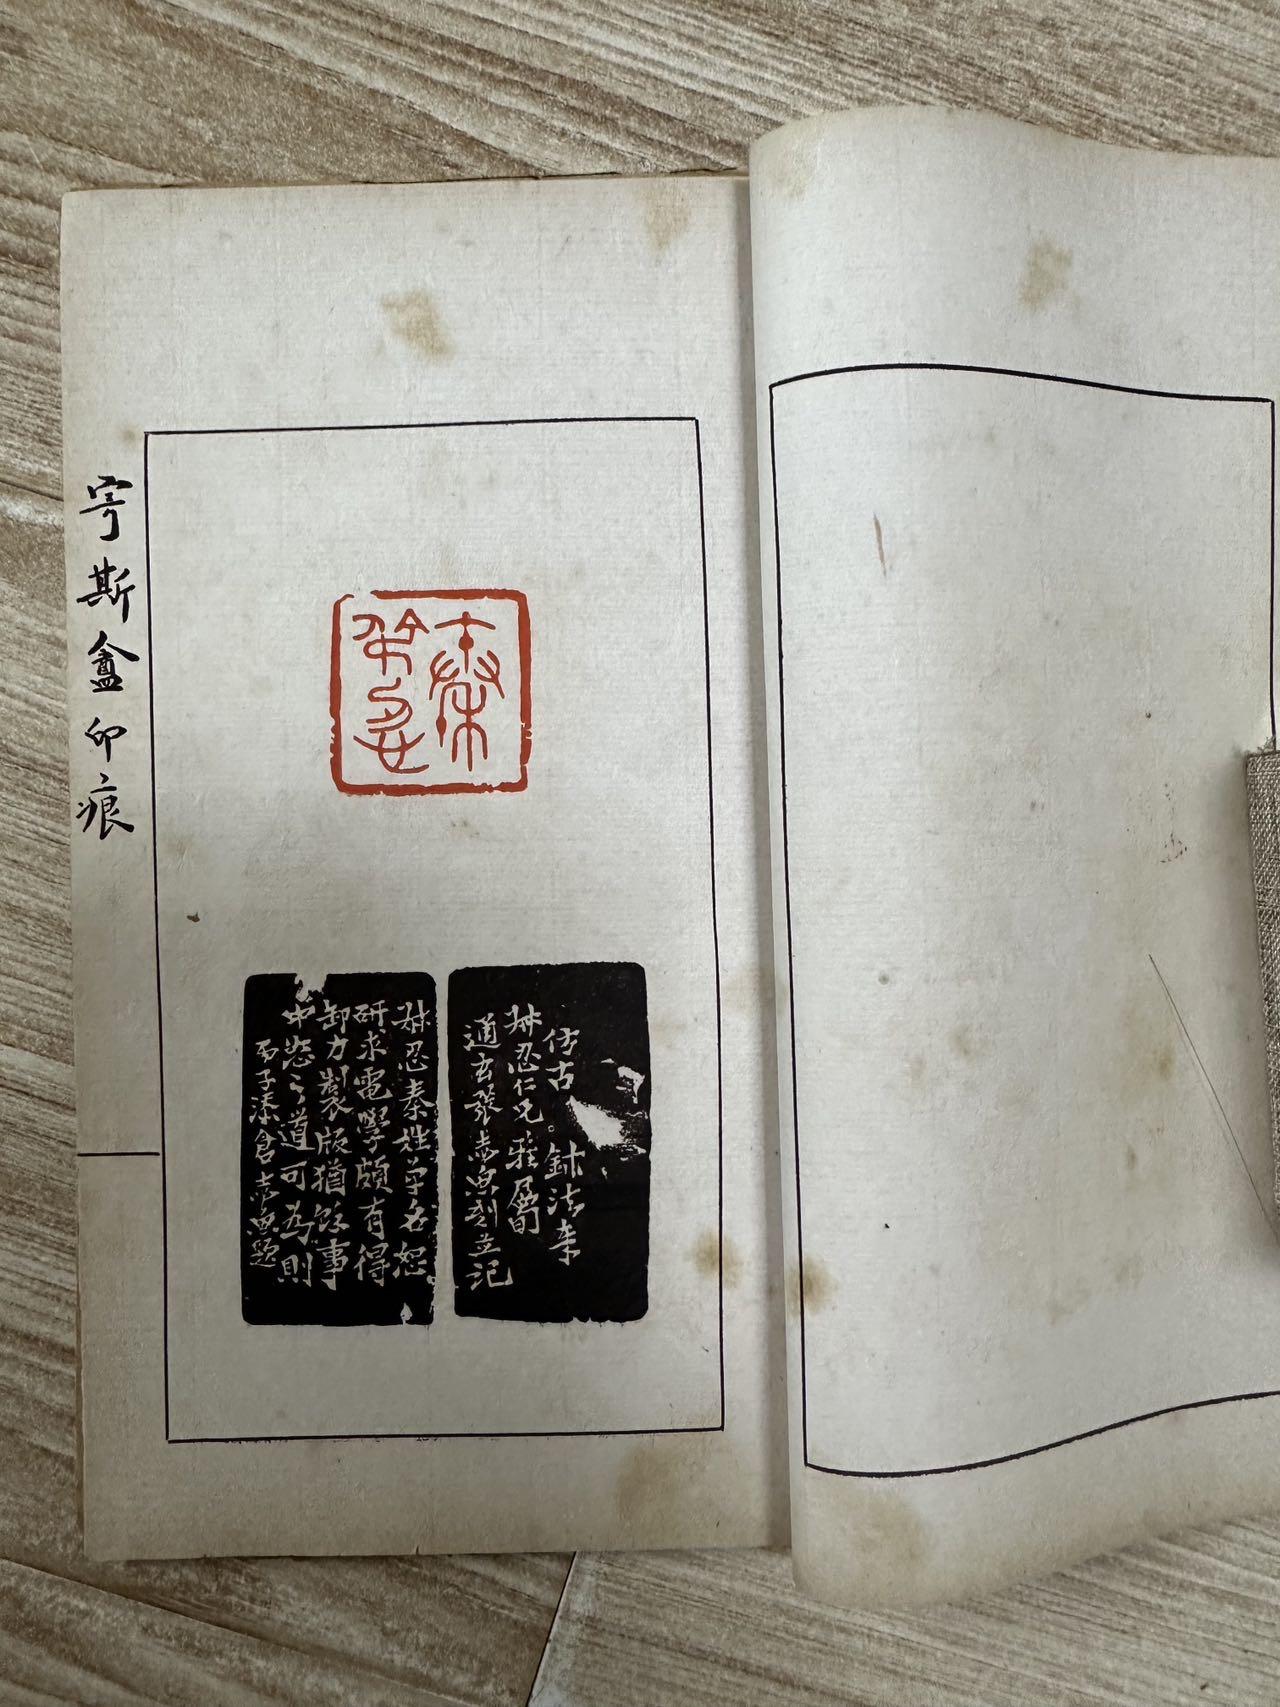 寄斯盦印痕
秦
仿古鉥法奉
叔忍仁兄雅屬
通玄張志魚刻並記
叔忍秦姓單名恕
研求電學頗有得
卸力製版猶餘事
忠恕之道可為則
丙子漆倉志魚題